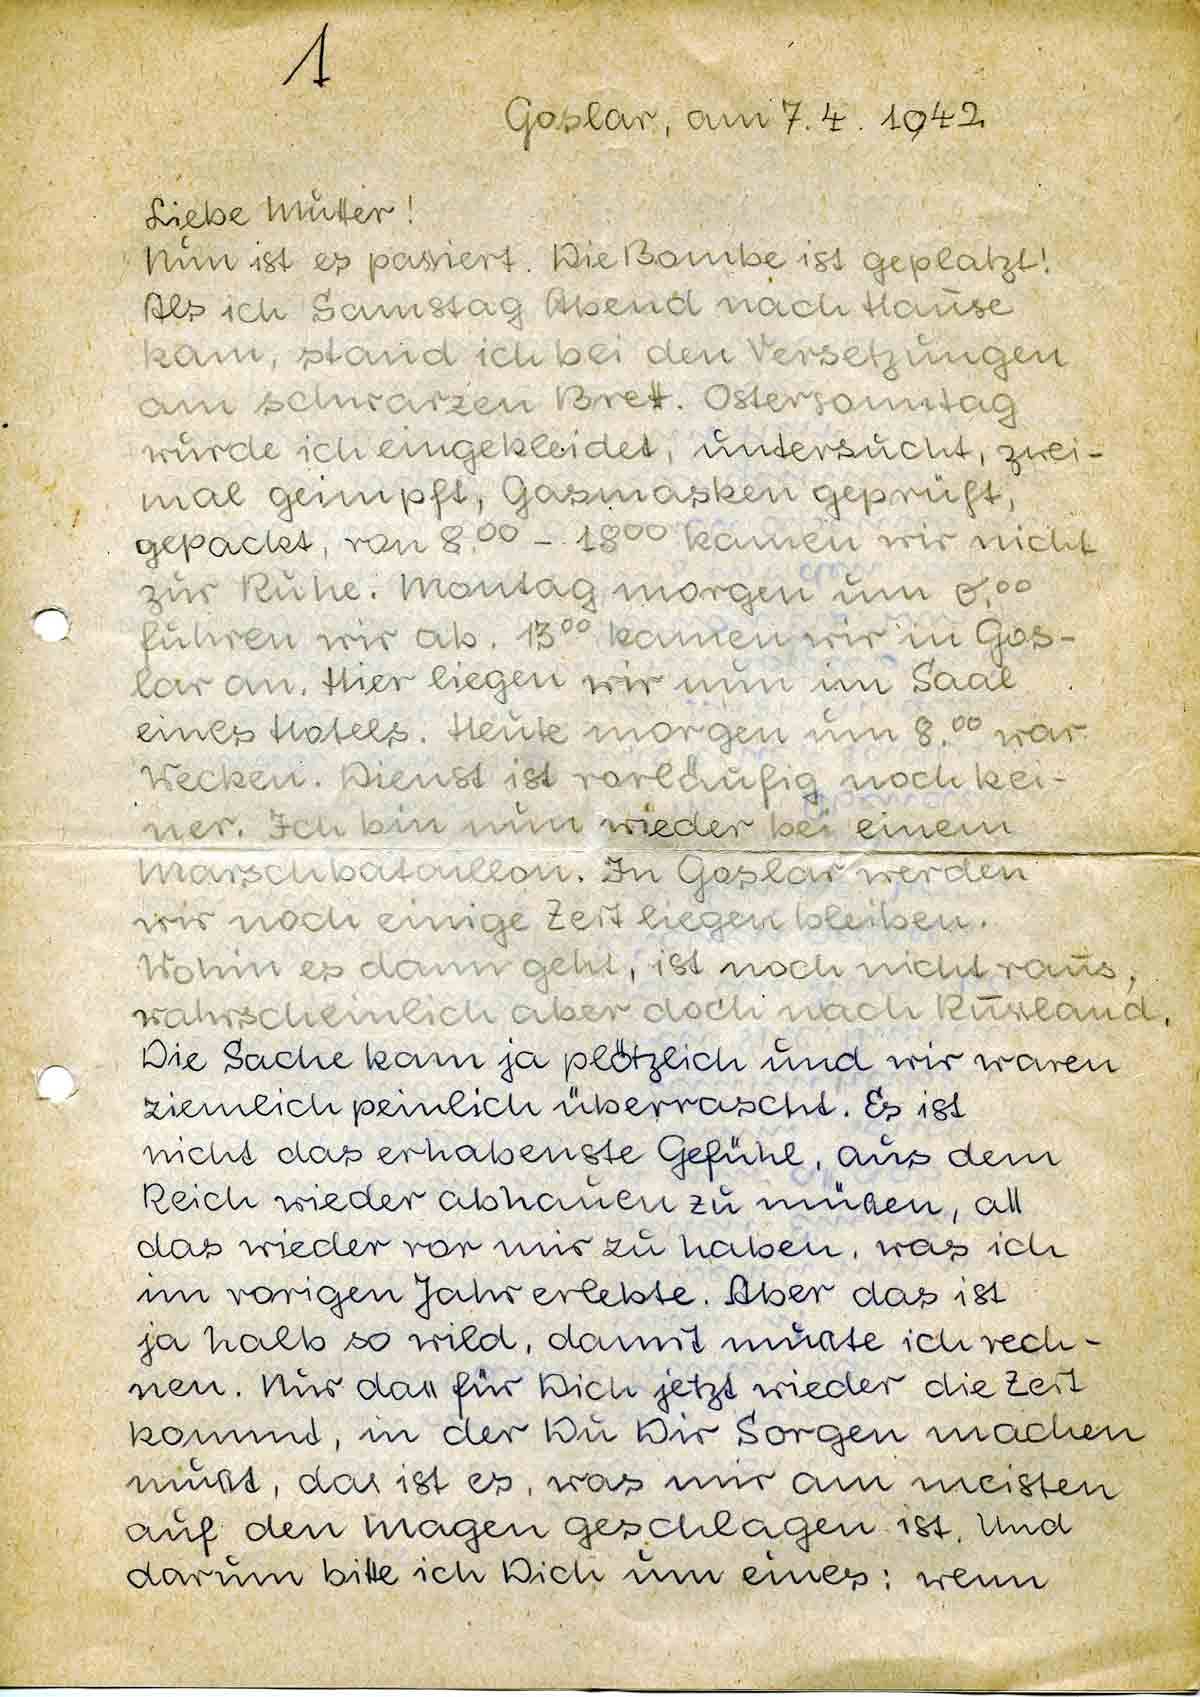 1
Goslar, am 7.4.1942
Liebe Mutter!
Nun ist es passiert. Die Bombe ist geplatzt!
Als ich Samstag Abend nach Hause
kam, stand ich bei den Versetzungen
am schwarzen Brett. Ostersonntag
wurde ich eingekleidet, untersucht, zwei-
mal geimpft, Gasmasken geprüft,
gepackt, von 8.00 – 18 00 kamen wir nicht
zur Ruhe. Montag morgen um 6.00
fuhren wir ab. 13 00 kamen wir in Gos-
lar an. Hier liegen wir nun im Saal
eines Hotels. Heute morgen um 8.00 war
Wecken. Dienst ist vorläufig noch kei-
ner. Ich bin nun wieder bei einem
Marschbataillon. In Goslar werden
wir noch einige Zeit liegen bleiben.
Wohin es dann geht, ist noch nicht raus,
wahrscheinlich aber doch nach Russland.
Die Sache kam ja plötzlich und wir waren
ziemlich peinlich überrascht. Es ist
nicht das erhabenste Gefühl, aus dem
Reich wieder abhauen zu müßen, all
das wieder vor mir zu haben, was ich
im vorigen Jahr erlebte. Aber das ist
ja halb so wild, damit mußte ich rech-
nen. Nur dass für Dich jetzt wieder die Zeit
kommt, in der Du Dir Sorgen machen
mußt, das ist es, was mir am meisten
auf den Magen geschlagen ist. Und
darum bitte ich Dich um eines: wenn